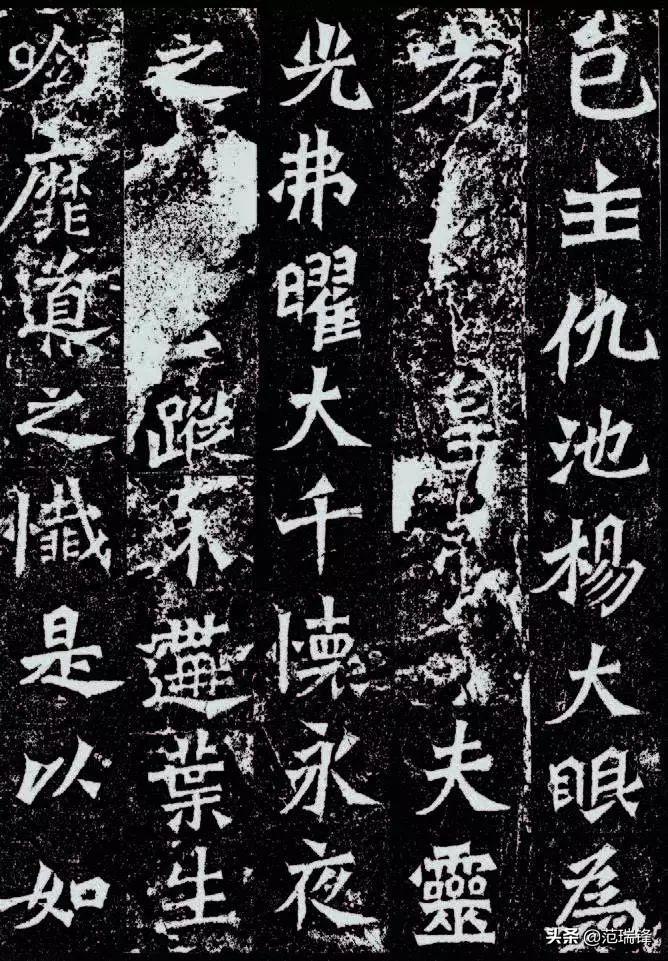 邑主仇池楊大眼為
孝皇帝夫靈
光弗曜大千懷永夜
之蹤不遘葉生
唅靡導之懺是以如
头条 @范瑞锋